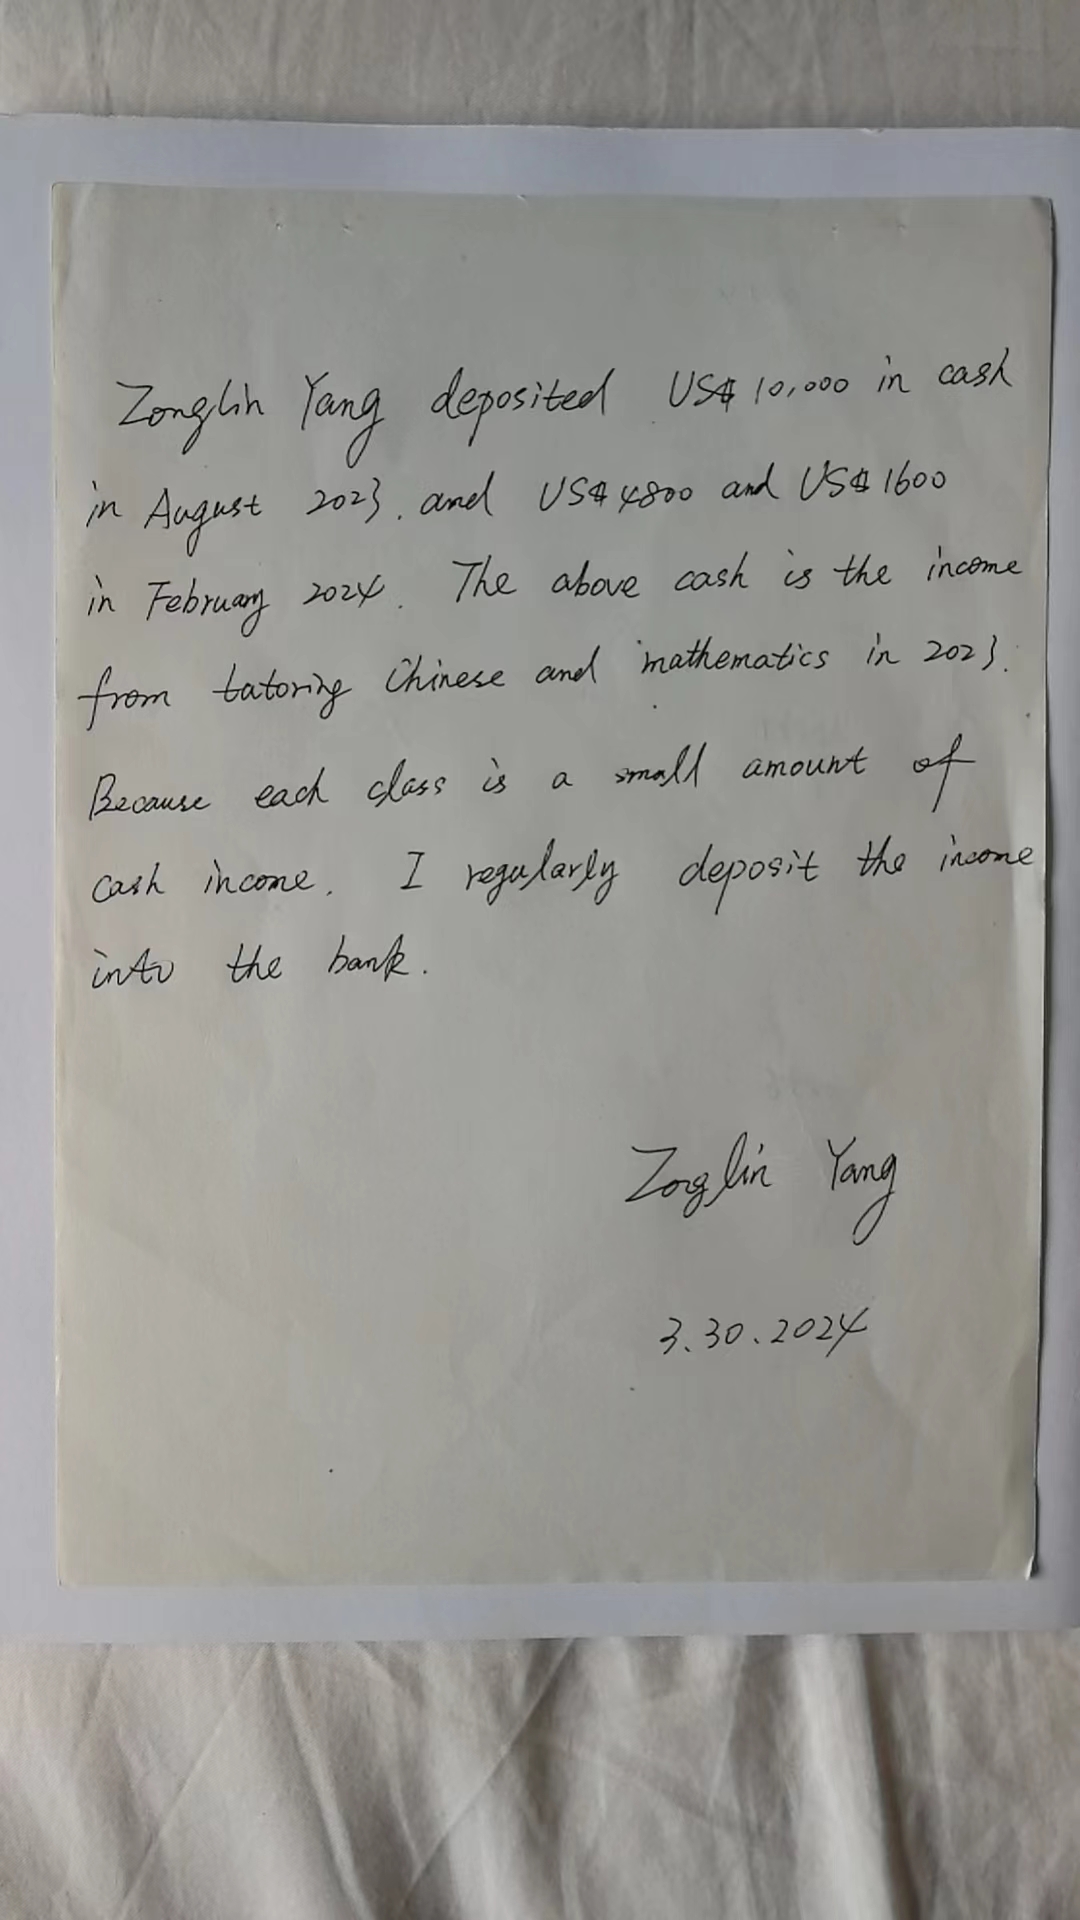 Zonglin Yang deposited US$ 10,000 in cash
in August 2023. and US$4800 and US$1600
in February 2024. The above cash is the income
from tatoring Chinese and mathematics in 2023.
Because each class is a small amount of
cash income. I regularly deposit the income
into the bank.
Zonglin Yang
3.30.2024